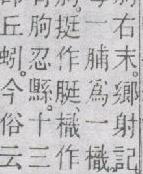 右末。鄉射記
一脯爲一樴。
挺作脡樴作
朐忍縣。十三
丘蚓。今俗云